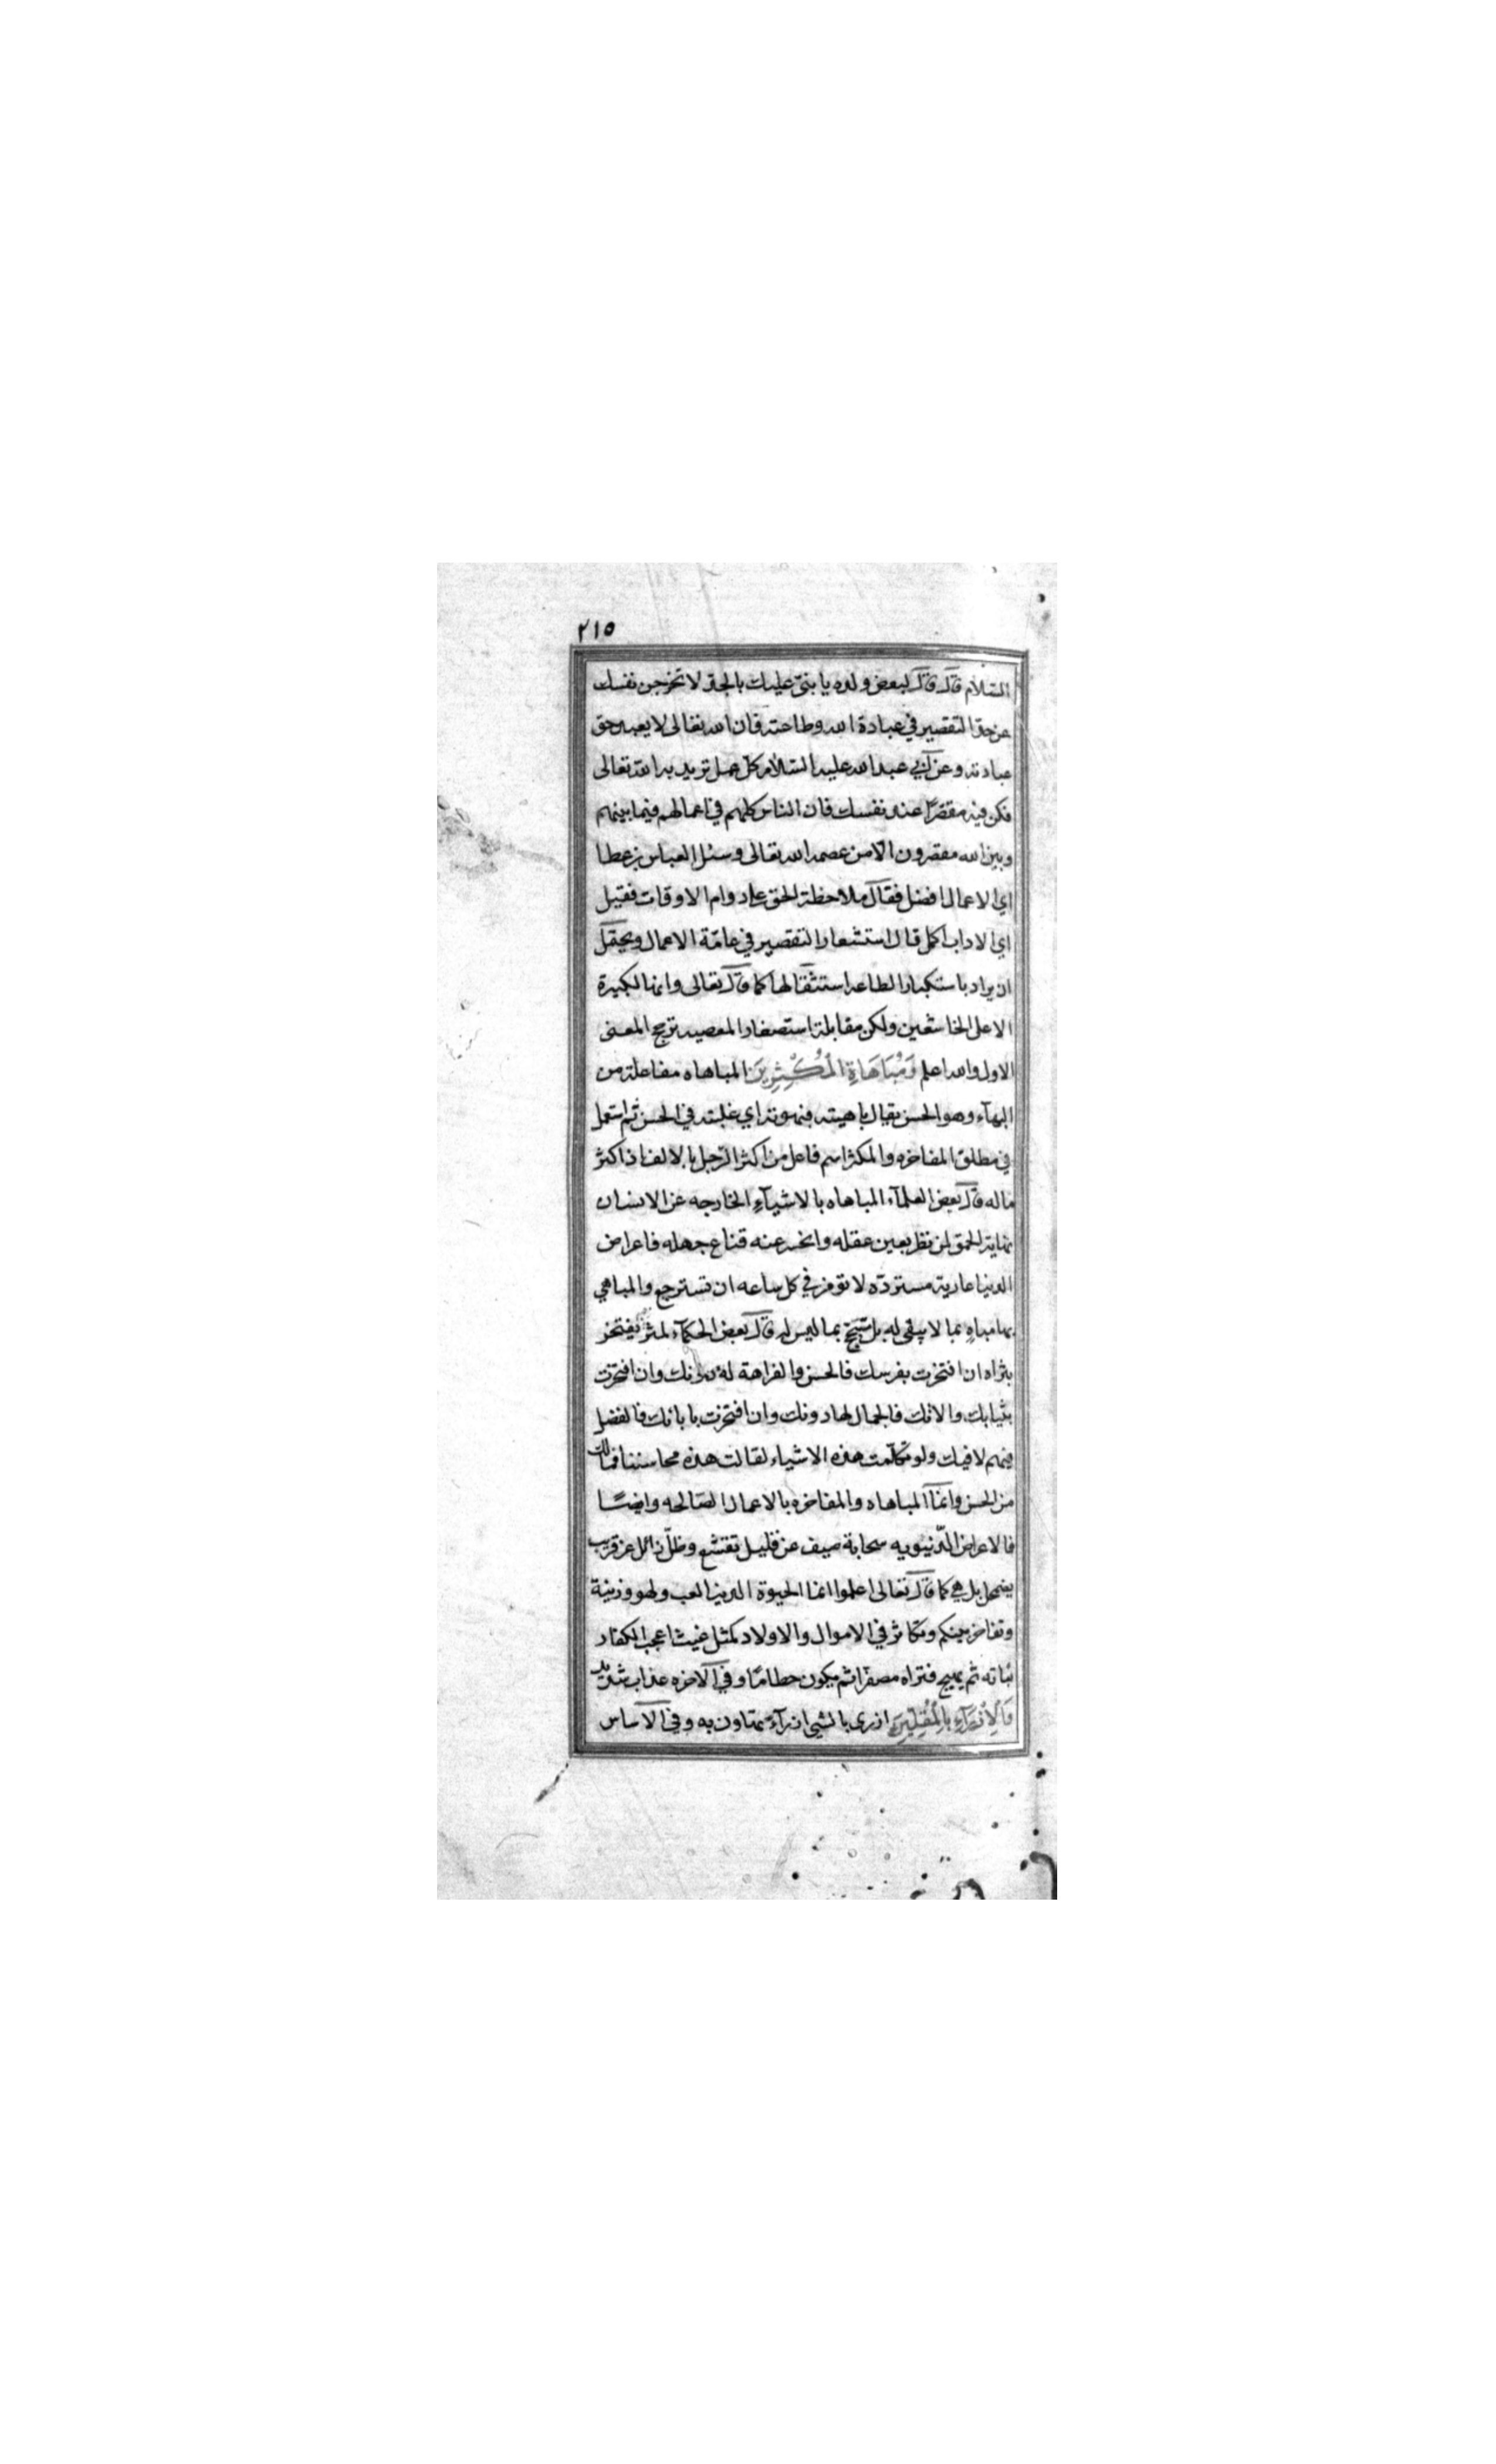 ٢١٥
السّلام قال قال لبعض ولده يا بنيّ عليك بالجدّ لا تخرجن نفسك
عن حد التقصير في عبادة الله وطاعته فان الله تعالى لا يعبد حق
عبادته وعن أبي عبد الله عليه السّلام كلّ عمل تريد به الله تعالى
فكن فيه مقصّرًا عند نفسك فان الناس كلهم في اعمالهم فيما بينهم
وبين الله مقصرون الّا من عصمه الله تعالى وسئل العباس بن عطا
اي الاعمال افضل فقال ملاحظة الحق على دوام الاوقات فقيل
اي الاداب اكمل قال استشعار التقصير في عامّة الاعمال ويحتمل
ان يراد باستكبار الطاعه استثقالها كما قال تعالى وانها لكبيرة
الا على الخاشعين ولكن مقابلة استصغار المعصيه ترجح المعنى
الاول والله اعلم وَمُبَاهَاةِ الْمُكْثِرِينَ المباهاه مفاعلة من
البهآء وهو الحسن يقال باهيته فبهوته اي غلبته في الحسن ثم استعمل
في مطلق المفاخره والمكثر اسم فاعل من اكثر الرّجل بالالف اذا كثر
ماله قال بعض العلمآء المباهاه بالاشيآءِ الخارجه عن الانسان
نهاية الحمق لمن نظر بعين عقله وانحسر عنه قناع جهله فاعراض
الدنيا عارية مستردّه لا تؤمن في كل ساعه ان تسترجع والمباهي
بها مباهٍ بما لا يبقى له بل متبجّح بما ليس له قال بعض الحكمآء لمثرٍ يفتخر
بثراه ان افتخرت بفرسك فالحسن والفراهة له دونك وان افتخرت
بثيابك والاتك فالجمال لها دونك وان افتخرت بابائك فالفضل
فيهم لا فيك ولو تكلّمت هذه الاشياء لقالت هذه محاسننا فما لك
من الحسن وانمآ المباهاه والمفاخره بالاعمال الصّالحه وايضًا
فالاعراض الدّنيويه سحابة صيف عن قليل تقشع وظلّ زائل عن قريب
يضمحل بل هي كما قال تعالى اعلموا انما الحيوة الدنيا لعب ولهو وزينة
وتفاخر بينكم وتكاثر في الاموال والاولاد كمثل غيث اعجب الكفار
نباته ثم يهيج فتراه مصفرّا ثم يكون حطامًا وفي الآخره عذاب شديد
وَالْاِزْرَآءِ بِالْمُقِلِّينَ ازرى بالشيء ازرآءً تهاون به وفي الاساس